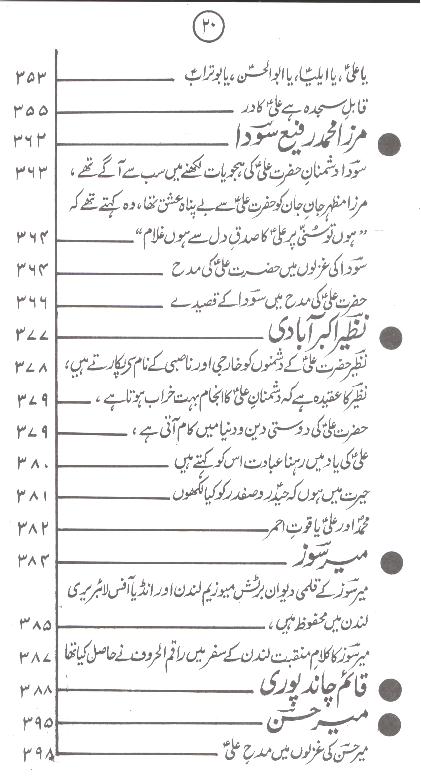 ۲۰
یا علیؑ، یا ایلیاؑ، یا ابو الحسنؑ، یا بو ترابؑ ۳۵۳
قابلِ سجدہ ہے علیؑ کا در ۳۵۵
مرزا محمد رفیع سودا ۳۶۲
سودا دشمنانِ حضرت علیؑ کی ہجویات لکھنے میں سب سے آگے تھے، ۳۶۳
مرزا مظہر جانِ جان کو حضرت علیؑ سے بے پناہ عشق تھا، وہ کہتے تھے کہ
”ہوں تو سُنّی پر علیؑ کا صدقِ دل سے ہوں غلام“ ۳۶۴
سودا کی غزلوں میں حضرت علیؑ کی مدح ۳۶۴
حضرت علیؑ کی مدح میں سودا کے قصیدے ۳۶۶
نظیر اکبر آبادی ۳۷۷
نظیر حضرت علیؑ کے دشمنوں کو خارجی اور ناصبی کے نام سے پکارتے ہیں، ۳۷۸
نظیر کا عقیدہ ہے کہ دشمنانِ علیؑ کا انجام بہت خراب ہوتا ہے، ۳۷۹
حضرت علیؑ کی دوستی دین و دنیا میں کام آتی ہے، ۳۷۹
علیؑ کی یاد میں رہنا عبادت اس کو کہتے ہیں ۳۸۰
حیرت میں ہوں کہ حیدر و صفدر کو کیا لکھوں ۳۸۱
محمدؐ اور علیؑ یاقوتِ احمر ۳۸۲
میر سوز ۳۸۴
میر سوز کے قلمی دیوان برٹش میوزیم لندن اور انڈیا آفس لائبریری
لندن میں محفوظ ہیں، ۳۸۵
میر سوز کا کلامِ منقبت لندن کے سفر میں راقم الحروف نے حاصل کیا تھا ۳۸۷
قائم چاند پوری ۳۸۸
میر حسن ۳۹۵
میر حسن کی غزلوں میں مدحِ علیؑ ۳۹۸